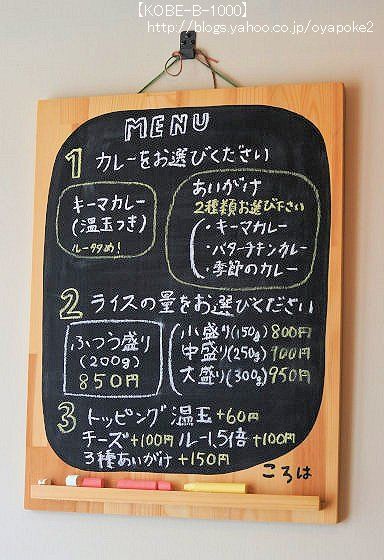 【KOBE-B-1000】
http://blogs.yahoo.co.jp/oyapoke2
MENU
1 カレーをお選びください
キーマカレー
(温玉つき)
ルー多め!
あいがけ
2種類お選び下さい
・キーマカレー
・バターチキンカレー
・季節のカレー
2 ライスの量をお選びください
ふつう盛り
(200g)
850円
小盛り(150g) 800円
中盛り(250g) 900円
大盛り(300g) 950円
3 トッピング 温玉+60円
チーズ+100円 ルー1.5倍+100円
3種あいがけ+150円
ころは